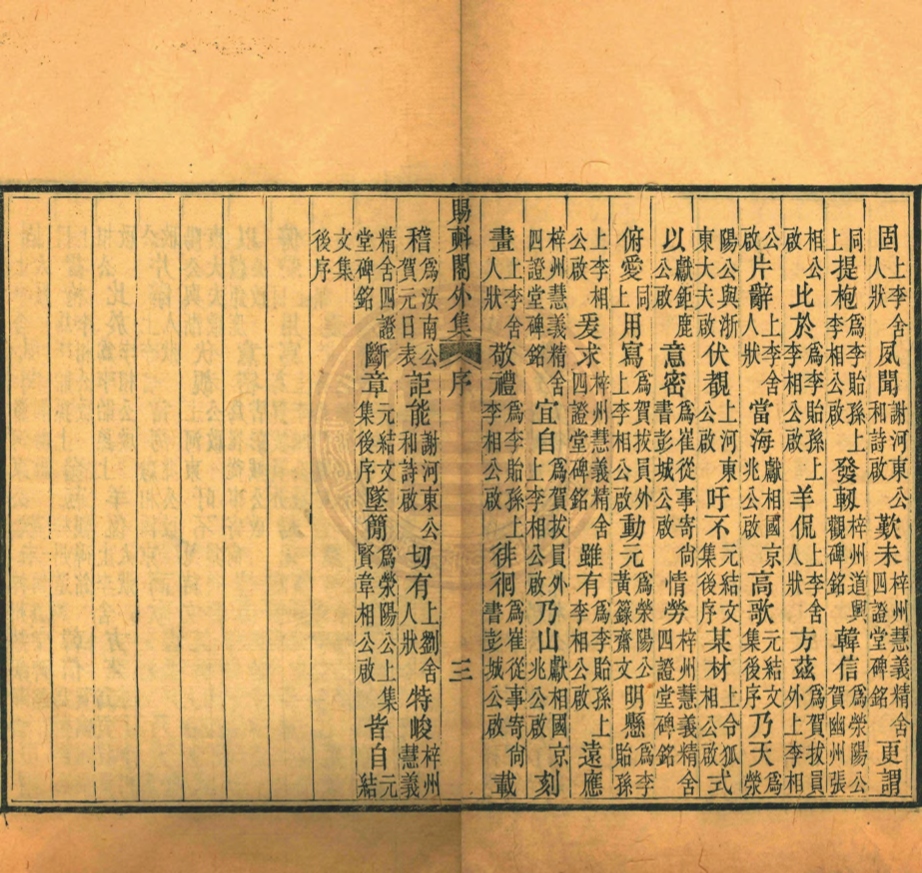 固上李舍人狀夙聞謝河東公和詩啟歎未梓州慧義精舍四證堂碑銘更謂
同上提枹為李貽孫上李相公啟發軔梓州道興觀碑銘韓信為滎陽公賀幽州張
相公啟比於為李貽孫上李相公啟羊侃上李舍人狀方茲為賀拔員外上李相
公啟片辭上李舍人狀當海獻相國京兆公啟高歌元結文集後序乃天為滎
陽公與浙東大夫啟伏覩上河東公啟吁不元結文集後序某材上令狐相公啟式
以獻鉅鹿公啟意密為崔從事寄尚書彭城公啟情勞梓州慧義精舍四證堂碑銘
俯愛同上用寫為賀拔員外上李相公啟動元為滎陽公黃籙齋文明懸為李貽孫
上李相公啟爰求梓州慧義精舍四證堂碑銘雖有為李貽孫上李相公啟遠應
梓州慧義精舍四證堂碑銘宜自為賀拔員外上李相公啟乃山獻相國京兆公啟刻
畫上李舍人狀敬禮為李貽孫上李相公啟徘徊為崔從事寄尚書彭城公啟載
賜斛閣外集 序 三
稽為汝南公賀元日表詎能謝河東公和詩啟切有上劉舍人狀特峻梓州慧義
精舍四證堂碑銘斷章元結文集後序墜簡為滎陽公上集賢韋相公啟皆自元結
文集後序